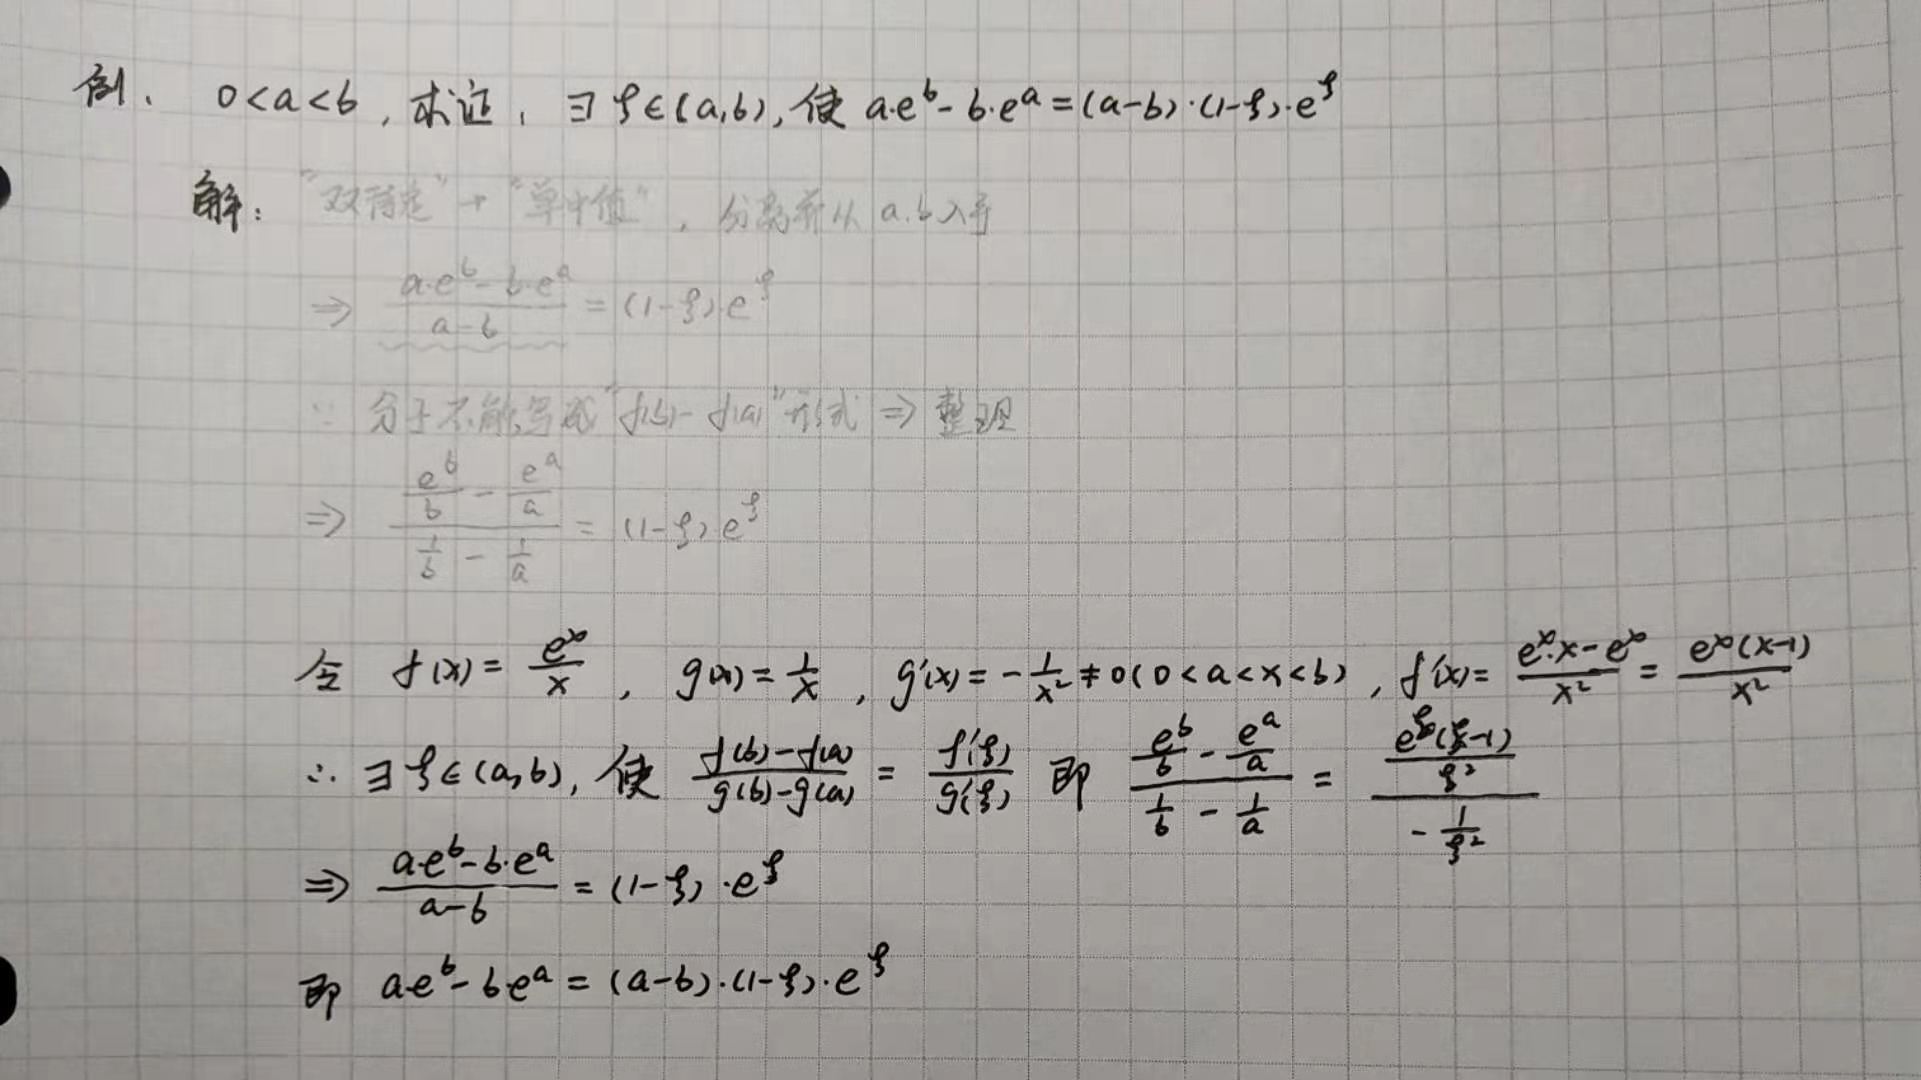 例. 0<a<b, 求证, ∃ξ∈(a,b), 使 a·e^b - b·e^a = (a-b)·(1-ξ)·e^ξ
解: "双" → "单中值", 分离并从 a.b入手
⇒ (a·e^b - b·e^a)/(a-b) = (1-ξ)·e^ξ
∵ 分子不能写成"f(b)-f(a)"形式 ⇒ 整理
⇒ (e^b/b - e^a/a)/(1/b - 1/a) = (1-ξ)·e^ξ
令 f(x) = e^x/x, g(x) = 1/x, g'(x) = -1/x² ≠ 0 (0<a<x<b), f'(x) = (e^x·x - e^x)/x² = e^x(x-1)/x²
∴ ∃ξ∈(a,b), 使 (f(b)-f(a))/(g(b)-g(a)) = f'(ξ)/g'(ξ) 即 (e^b/b - e^a/a)/(1/b - 1/a) = (e^ξ(ξ-1)/ξ²)/(-1/ξ²)
⇒ (a·e^b - b·e^a)/(a-b) = (1-ξ)·e^ξ
即 a·e^b - b·e^a = (a-b)·(1-ξ)·e^ξ